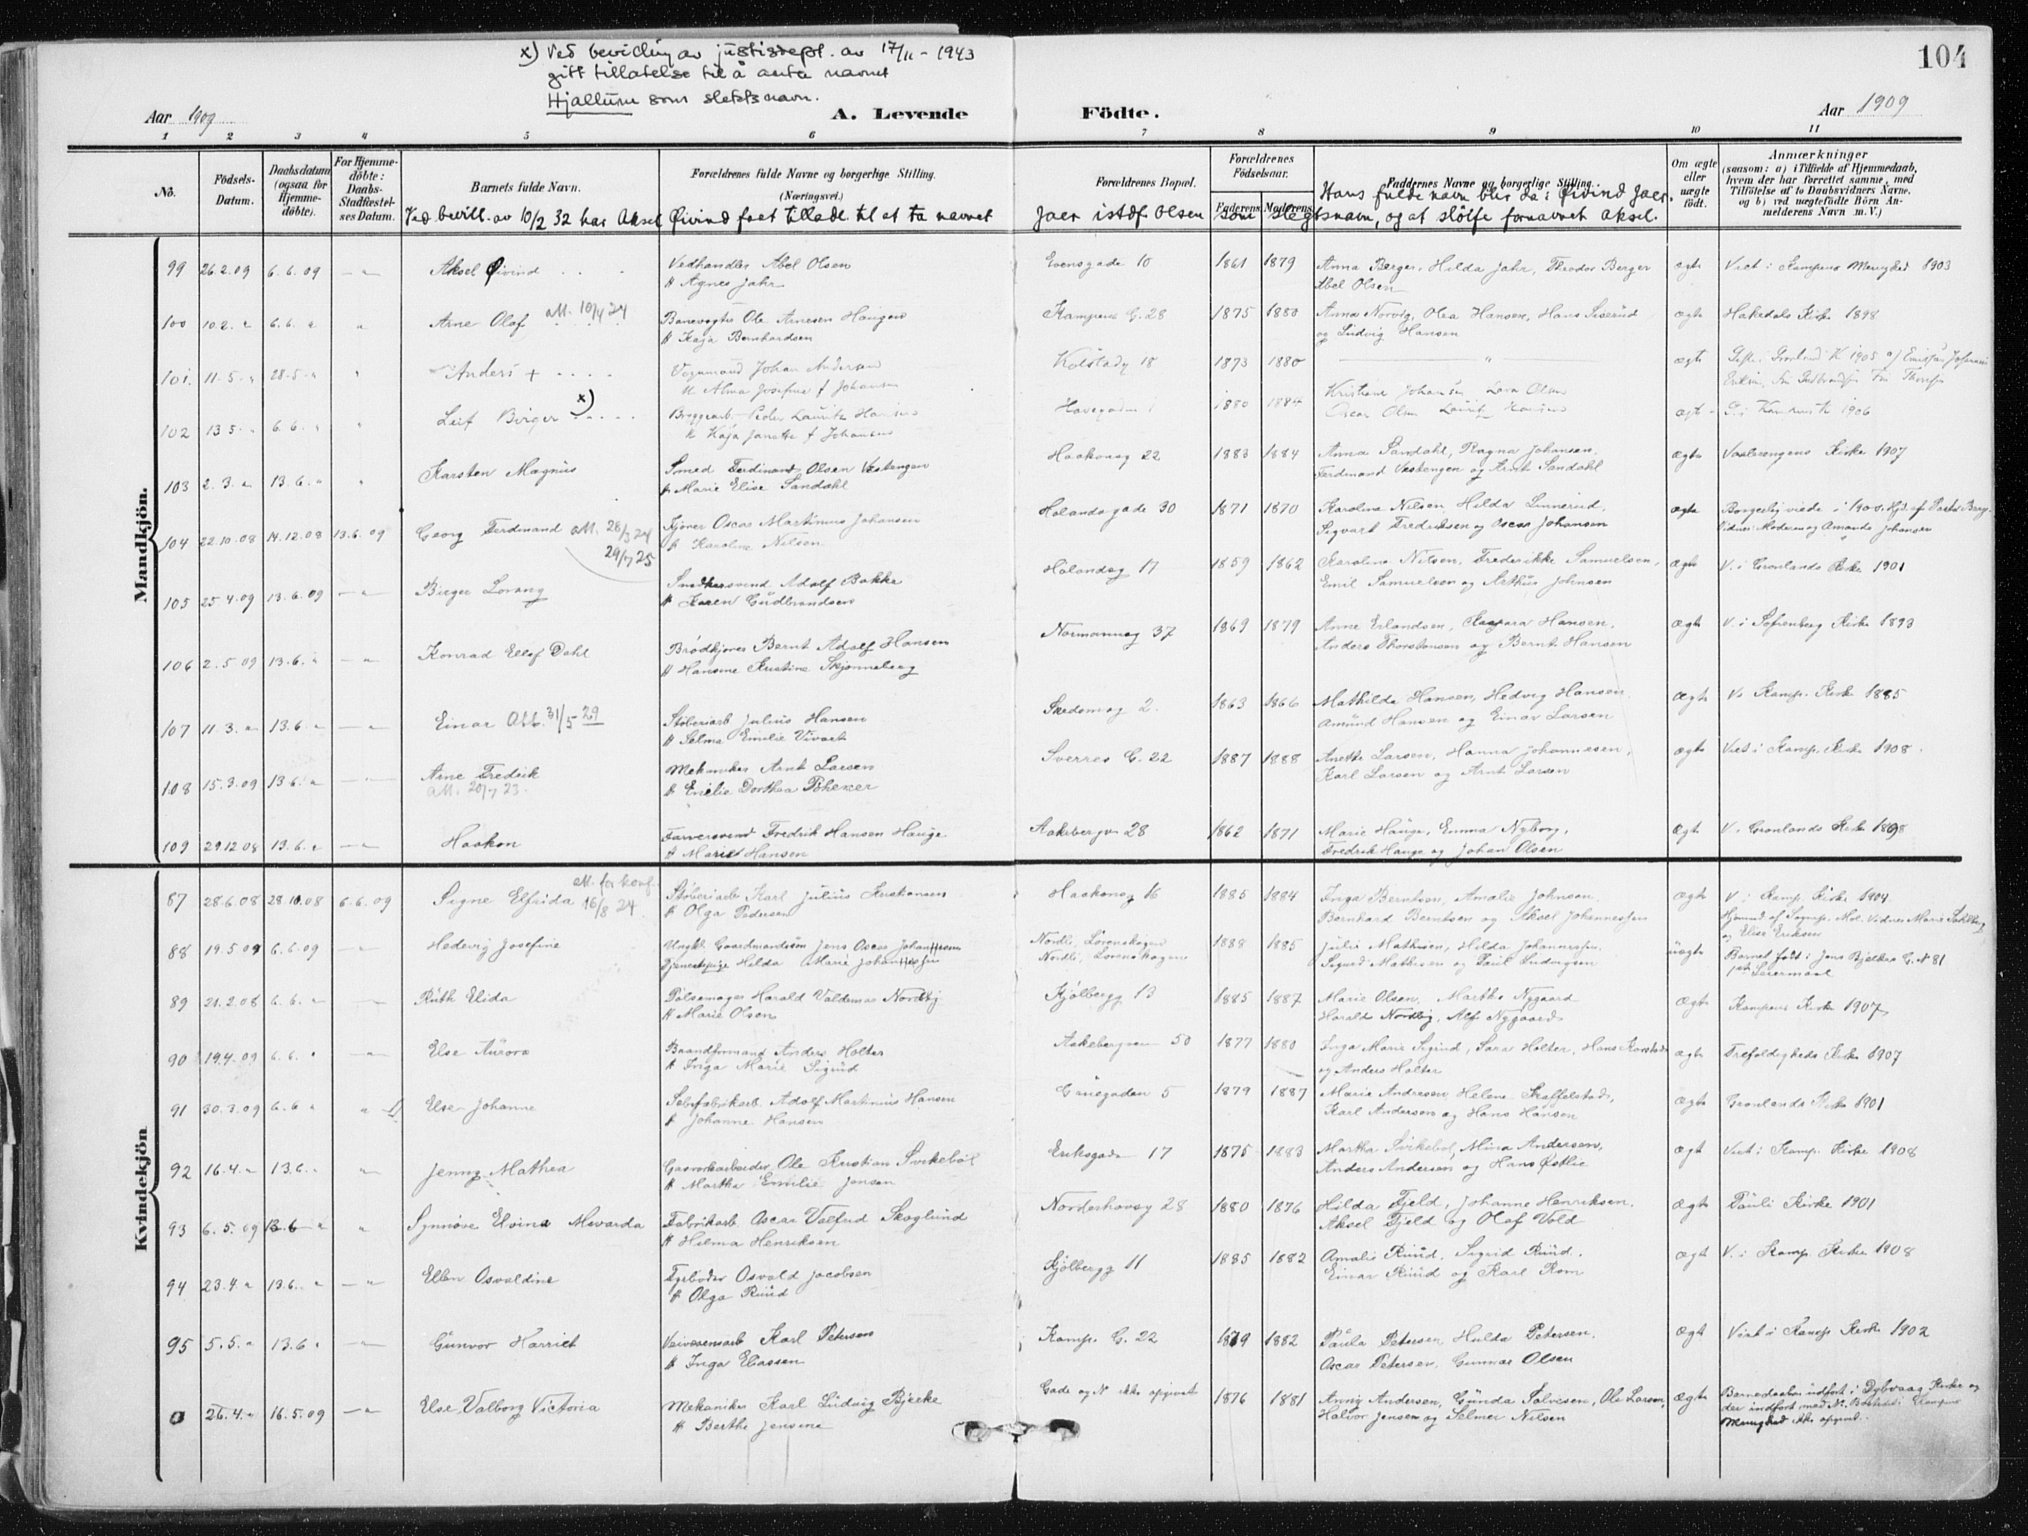 x) Ved bevilling av justisdept. av 17/11 - 1943
gitt tillatelse til å anta navnet
Hjallum som slektsnavn.
104
Aar 1909
A. Levende
Födte.
Aar 1909
1 2 3 4 5 6 7 8 9 10 11
No. Födsels-Datum. Daabsdatum (ogsaa for Hjemme-döbte). For Hjemme-döbte: Daabs-Stadfæstel-ses Datum. Barnets fulde Navn. Forældrenes fulde Navne og borgerlige Stilling. (Næringsvei.) Forældrenes Bopæl. Forældrenes Födselsaar. Faderens Moderens Faddernes Navne og borgerlige Stilling. Om ægte eller uægte födt. Anmærkninger (saasom: a) i Tilfælde af Hjemmedaab, hvem der har forrettet samme, med Tilföielse af to Daabsvidners Navne. og b) ved uægtefödte Börn An-melderens Navn m.V.)
Hans fulde navn blir da: Øivind Jaer
Ved bevill. av 10/2 32 har Aksel Øivind faat tilladt til at ta navnet Jaer istdf. Olsen som slegtsnavn, og at sløife fornavnet Aksel.
Mandkjön.
99 26.2.09 6.6.09 Aksel Øivind Vedhandler Abel Olsen Evensgade 10 1861 1879 Anna Berger, Hilda Jahr, Theodor Berger ægte Viet i Kampens Menighed 1903
H Agnes Jahr Abel Olsen
100 10.2. 6.6. Arne Olaf att. 10/4 24 Banevogter Ole Arnesen Haugen Kampens G. 28 1875 1880 Anna Norvig, Olea Hansen, Hans ægte Hakedals Kirke 1898
H Kaja Bernhardsen og Ludvig Hansen
101. 11.5. 28.5. Anders + Vognmand Johan Andersen 18 1873 1880 ægt
H Alma Josefine f Johansen
102 13.5. 6.6. Leif Birger x) Bryggearb. Peder Lauritz Hansen 1880 1884 Kristiane Johansen Lova Olsen ægt 1906
H Kaja Janette f Johansen Oscar Olsen Lauritz Hansen
103 2.3. 13.6. Karsten Magnus Smed Ferdinand Olsen Vestengen Haakonsg 22 1883 1884 Anna Sandahl, Ragna Johansen. ægte Vaalerengens Kirke 1907
H Marie Elise Sandahl Ferdinand Vestengen og Arnt Sandahl
104 22.10.08 14.12.08 13.6.09 Georg Ferdinand att. 28/3 24 29/7 25 Kjører Oscar Martinius Johansen Hølandsgade 30 1871 1870 Karoline Nilsen, Hilda Linnerud, ægte Borgerlig viede i 1900.
H Karoline Nilsen Sigvart Fredriksen og Oscar Johansen Vidner: Moderen og Amanda Johansen
105 25.4.09 13.6.09 Birger Lorang Snedkersvend Adolf Bakke Hølandsg 17 1859 1862 Karoline Nilsen, Frederikke Samuelsen, Ægte V. i Grønlands Kirke 1901
H Karen Gudbrandsen Emil Samuelsen og Arthur Johnsen
106 2.5.09 13.6. Konrad Ellef Dahl Brødkjører Bernt Adolf Hansen Normannsg 37 1869 1879 Anne Erlandsen, Kaspara Hansen, Ægte V. i Sofienberg Kirke 1893
H Hansine Kristine Skjønneberg Anders Thorstensen og Bernt Hansen
107 11.3. 13.6. Einar Att. 31/5 29 Støberiarb Julius Hansen Skedsmog 2. 1863 1866 Mathilde Hansen, Hedvig Hansen Ægte V. Kamp. Kirke 1885
H Selma Emilie Vivart Amund Hansen og Einar Larsen
108 15.3.09 13.6. Arne Fredrik Mekaniker Arnt Larsen Sverres G. 22 1887 1888 Anette Larsen, Hanna Johannesen, Ægte Viet i Kamp. Kirke 1908.
att. 20/7 23. H Emilie Dorthea Karl Larsen og Arnt Larsen
109 29.12.08 13.6. Haakon Farversvend Fredrik Hansen Hauge Aakebergv 28 1862 1871 Marie Hauge, Emma Nyborg, Ægt V. Grønlands Kirke 1898
H Marie Hansen Fredrik Hauge og Johan Olsen
Kvindekjön
87 28.6.08 28.10.08 6.6.09 Signe Elfrida att. for konf. 16/8 24 Støberiarb Karl Julius Kristiansen Haakonsg 16 1885 1884 Inga Berntsen, Amalie Johnsen. Ægte V. i Kamp. Kirke 1904
H Olga Pedersen Bernhard Berntsen og Aksel Johannessen og Elise Eriksen
88 19.5.09 6.6.09 Hedevig Josefine Ungkl. Gaardmandssøn Jens Oscar Johansen Nordli, Lørenskogen 1888 1885 Julie Mathisen, Hilda Johannessen. uægte Barnet født i Jens Bjelkes G. N 81
Tjenestepige Hilda Marie Johannessen Nordli, Lørenskogen Sigurd Mathisen og Paul Ludvigsen 1ste Leiermaal
89 21.2.08 6.6. Ruth Elida Pølsemager Harald Valdemar Nordby Kjølbergg 13 1885 1887 Marie Olsen, Martha Nygaard Ægte Kampens Kirke 1907
H Marie Olsen Harald Nordby, Alf Nygaard
90 19.4.09 6.6. Else Aurora Brandformand Anders Holter Aakebergveien 50 1877 1880 Inga Marie Sigurd, Sara Holter, Hans ægte Trefoldigheds Kirke 1907
H Inga Marie Sigurd og Anders Holter
91 30.3.09 6.6 Else Johanne Sebefabrikarb. Adolf Martinius Hansen Grønegaden 5 1879 1887 Marie Andresen, Helene Skaffelstad, Ægte Grønlands Kirke 1901
H Johanne Hansen Karl Andersen og Hans Hansen
92 16.4. 13.6. Jenny Mathea Gasverkarbeider Ole Kristian Svikebøl Eriksgade 17 1875 1883 Martha Svikebøl, Mina Andersen, Ægt Viet i Kamp. Kirke 1908
H Martha Emilie Jensen Anders Andersen og Hans Østlie
93 6.5.09 13.6 Synnøve Elvina Alvarda Fabrikarb. Oscar Valfrid Skoglund Norderhovsg 28 1880 1876 Hilda Fjeld, Johanne Henriksen. Ægte Pauli Kirke 1901
H Hilma Henriksen Aksel Fjeld og Olaf Vold
94 23.4 13.6. Ellen Osvaldine Fyrbøder Osvald Jacobsen Kjølbergg 11 1885 1882 Amalie Ruud, Sigrid Ruud. Ægt V. i Kamp. Kirke 1908
H Olga Ruud Einar Ruud og Karl Rom
95 5.5. 13.6 Gunvor Harriet Veivæsensarb Karl Petersen Kamp. G. 22 1879 1882 Paula Petersen, Hulda Petersen. Ægt Viet i Kamp. Kirke 1902
H Inga Eliassen Oscar Petersen, Gunnar Olsen
0 26.4. 16.5.09 Else Valborg Victoria Mekaniker Karl Ludvig Bjerke Gade og N ikke opgivet 1876 1881 Anny Andersen, Gunda Sølvesen, Ole Larsen, Ægte Barnedaaben indført i Dybvaag Kirke og
H Berthe Jensine Halvor Jensen og Selmer Nilsen der indført med N. Bosted i Kampens
Menighed ikke opgivet.